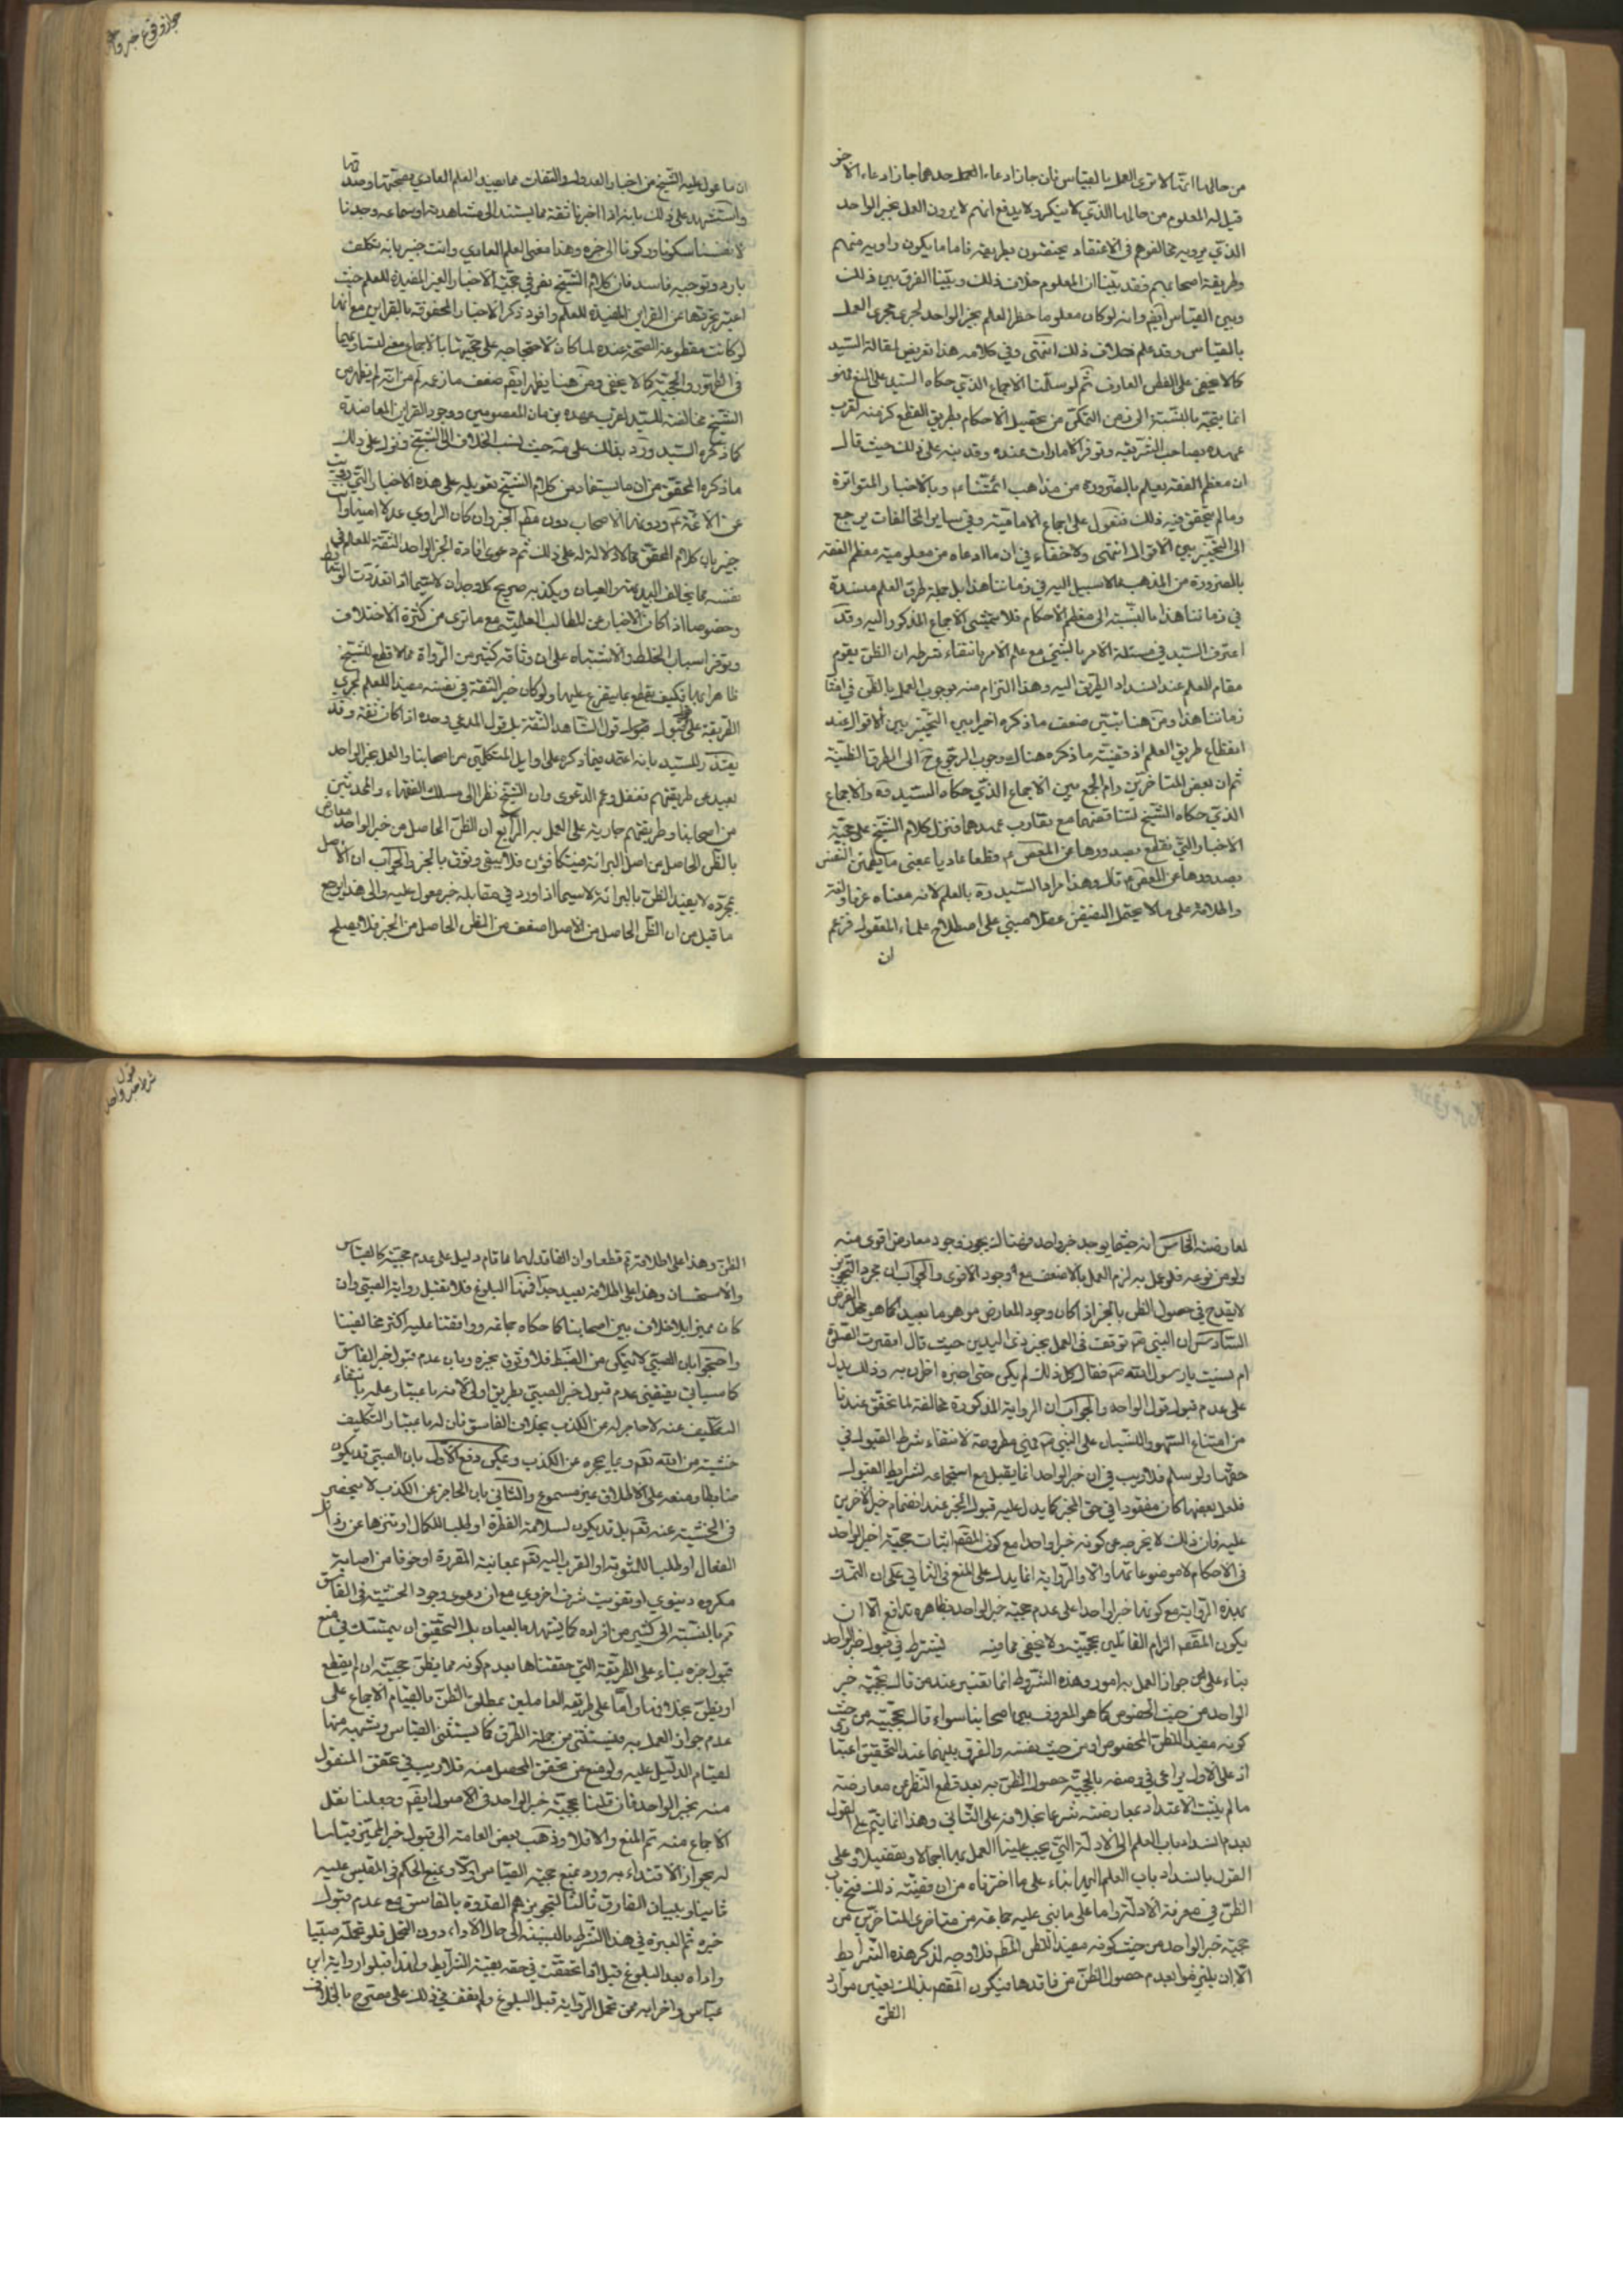 من حالها ائمتنا لا ترى العمل بالقياس فان جاز ادعاء العمل جاز ادعاء الآخر
قيل له المعلوم من حالها الذي لا ينكر ولا يدفع انهم لا يرون العمل بخبر الواحد
الذي يرويه مخالفوهم في الاعتقاد ويختصون بطريقه فاما ما يكون راويه منهم
وطريقه اصحابهم فقد بيّنا ان المعلوم خلاف ذلك وبيّنا الفرق بين ذلك
وبين القياس ايضا وانه لو كان معلوما حظر العلم بخبر الواحد لجرى مجرى العمل
بالقياس وقد علم خلاف ذلك انتهى وفي كلامه هذا تعريض لمقالة السيد
كما لا يخفى على الفطن العارف ثم لو سلّمنا الاجماع الذي حكاه السيد على المنع فهو
انما يتجه بالنسبة الى من التمكن من تحصيل الاحكام بطريق القطع كزمنه لقرب
عهده بصاحب الشريعة وتوفر الامارات عنده وقد نبه على ذلك حيث قال
ان معظم الفقه يعلم بالضرورة من مذاهب ائمتنا ع وبالاخبار المتواترة
وما لم يتحقق فيه ذلك فنعول على اجماع الامامية وفي ساير الخالفات يرجع
الى التخيير بين الاقوال انتهى ولا خفاء في ان ما ادعاه من معلومية معظم الفقه
بالضرورة من المذهب مما لا سبيل اليه في زماننا هذا بل جملة طرق العلم منسدة
في زماننا هذا بالنسبة الى معظم الاحكام فلا يتمشى الاجماع المذكور اليه وقد
اعترف السيد في مسئلة الامر بالشيء مع علم الامر بانتفاء شرطه ان الظن يقوم
مقام العلم عند انسداد الطريق اليه وهذا التزام منه بوجوب العمل بالظن في
زماننا هذا ومن هنا تبين ضعف ما ذكره اخيرا من التخيير بين الاقوال عند
انقطاع طريق العلم اذ قضية ما ذكره هناك وجوب الرجوع ح الى الطرق الظنية
ثم ان بعض المتاخرين رام الجمع بين الاجماع الذي حكاه السيد ره والاجماع
الذي حكاه الشيخ لتناقضهما مع تقارب عهدهما فنزل كلام الشيخ على حجية
الاخبار التي نقطع بصدورها عن المعصوم ع قطعا عاديا بمعنى ما يطمئن النفس
بصدورها عن المعصوم قال وهذا مراد السيد ره بالعلم لانه معناه عرفا ولغة
واطلاقه على ما لا يحتمل النقيض عقلا مبني على اصطلاح علماء المعقول فزعم
ان
جواز وقوع خبر واحد
ان ما عول عليه الشيخ من اخبار العدول والثقات مما يفيد العلم العادي بصحتها وصدقها
واستشهد على ذلك بانه اذا اخبرنا ثقة مما يستند الى مشاهدته او سماعه وجدنا
لانفسنا سكونا وركونا الى خبره وهذا معنى العلم العادي وانت خبير بانه تكلف
بارد وتوجيه فاسد فان كلام الشيخ نص في حجية الاخبار الغير المفيدة للعلم حيث
اعتبر تجردها عن القراين المفيدة للعلم وافرد ذكر الاخبار المحفوفة بالقراين مع انها
لو كانت مقطوعة الصحة عنده لما كان لاحتجاجه على حجيتها بالاجماع معنى لتساويهما
في الظهور والحجية كما لا يخفى ومن هنا يظهر ايضا ضعف ما زعمه من انه لم يظهر من
الشيخ مخالفته للسيد لقرب عهده بزمان المعصومين ووجود القراين المعاضدة
كما ذكره السيد ورد بذلك على حيث نسب الخلاف الى الشيخ ونزل على ذلك
ما ذكره المحقق من ان ما يستفاد من كلام الشيخ تعويله على هذه الاخبار التي رويت
عن الائمة ع ودونها الاصحاب دون مطلق الخبر وان كان الراوي عدلا اماميا وانت
خبير بان كلام المحقق مما لا دلالة له على ذلك ثم دعوى افادة الخبر الواحد الثقة للعلم في
نفسه مما يخالف البديهة من العيان ويكذبه صريح الوجدان لا سيما اذا تعددت الوسايط
وخصوصا اذا كان الاخبار عن المطالب العلمية مع ما ترى من كثرة الاختلاف
وتوفر اسباب الخلط والاشتباه على ان وثاقة كثير من الرواة مما لا قطع للشيخ
ظاهرا بها فكيف يقطع بما يتفرع عليها ولو كان خبر الثقة في نفسه مفيدا للعلم لجرى
الطريقة على قبول قول الشاهد الثقة بل قول المدعي وحده اذا كان ثقة وقد
يعتذر للسيد بانه اعتمد فيما ذكره على اوايل المتكلمين من اصحابنا والعمل بخبر الواحد
بعيد عن طريقتهم فغفل وعم الدعوى وان الشيخ نظر الى مسلك الفقهاء والمحدثين
من اصحابنا وطريقتهم جارية على العمل به الرابع ان الظن الحاصل من خبر الواحد معارض
بالظن الحاصل من اصل البرائة فيتكافؤن فلا يبقى وثوق بالخبر والجواب ان الاصل
بمجرده لا يفيد الظن بالبرائة لا سيما اذا ورد في مقابله خبر معول عليه والى هذا يرجع
ما قيل من ان الظن الحاصل من الاصل اضعف من الظن الحاصل من الخبر فلا يصلح
لمعارضته الخامس انه حيثما يوجد خبر واحد فهناك يجوز وجود معارض اقوى منه
ولو من نوعه فلو عمل به لزم العمل بالاضعف مع وجود الاقوى والجواب ان مجرد التجويز
لا يقدح في حصول الظن بالخبر اذا كان وجود المعارض موهوما بعيدا كما هو محل الفرض
السادس ان النبي ص توقف في العمل بخبر ذي اليدين حيث قال اقصرت الصلوة
ام نسيت يا رسول الله ص فقال كل ذلك لم يكن حتى اخبره اخران به وذلك يدل
على عدم قبول قول الواحد والجواب ان الرواية المذكورة مخالفة لما تحقق عندنا
من امتناع السهو والنسيان على النبي ص فهي مطروحة لانتفاء شرط القبول في
حقها ولو سلم فلا ريب في ان خبر الواحد انما يقبل مع استجماعه لشرايط القبول
فلعل بعضها كان مفقودا في حق المخبر كما يدل عليه قبول الخبر عند انضمام خبر الآخرين
عليه فان ذلك لا يخرجه عن كونه خبرا واحدا مع كون المقصود اثبات حجية خبر الواحد
في الاحكام لا موضوعاتها والا والرواية انما يدل على المنع في الثاني على ان التمسك
بهذه الرواية مع كونها خبرا واحدا على عدم حجية خبر الواحد ظاهره تدافع الا ان
يكون المقصود الزام القائلين بحجيته ولا يخفى ما فيه يشترط في قبول خبر الواحد
بناء على جواز العمل به امور وهذه الشروط انما تعتبر عند من قال بحجية خبر
الواحد من حيث الخصوص كما هو المعروف بين اصحابنا سواء قال بحجيته من حيث
كونه مفيدا للظن المخصوص او من حيث نفسه والفرق بينهما عند التحقيق اعتباري
اذ على الاول يراعى في وصفه بالحجية حصول الظن به بعد قطع النظر عن معارضة
ما لم يثبت الاعتداد بمعارضته شرعا بخلافه على الثاني وهذا انما يتم على القول
بعدم انسداد باب العلم الى الادلة التي يجب علينا العمل بها اجمالا وتفصيلا وعلى
القول بانسداد باب العلم اليها بناء على ما اخترناه من ان قضية ذلك فتح باب
الظن في معرفة الادلة واما على ما بنى عليه جماعة من متاخري المتاخرين من
حجية خبر الواحد من حيث كونه مفيدا للظن المطلق فلا وجه لذكر هذه الشرايط
الا ان يلتزموا بعدم حصول الظن من فاقدها فيكون المقصود بذلك تعيين موارد
الظن
قبول
شرط خبر واحد
الظن وهذا على اطلاقه ثم قطعا وان الفاقد لها مما قام دليل على عدم حجيته كالقياس
والاستحسان وهذا على اطلاقه بعيد جدا فمنها البلوغ فلا تقبل رواية الصبي وان
كان مميزا بلا خلاف بين اصحابنا كما حكاه جماعة ووافقنا عليه اكثر مخالفينا
واحتجوا بان الصبي لا يتمكن من الضبط فلا وثوق بخبره وبان عدم قبول خبر الفاسق
كما سيأتي يقتضي عدم قبول خبر الصبي بطريق اولى لانه باعتبار علمه بانتفاء
التكليف عنه لا حاجز له عن الكذب بخلاف الفاسق فان له باعتبار التكليف
خشية من الله تعم ربما يحجزه عن الكذب ويمكن دفع الاول بان الصبي قد يكون
ضابطا ومنعه على الاطلاق غير مسموع والثاني بان الحاجز عن الكذب لا ينحصر
في الخشية عنه تعم بل قد يكون لسلامة الفطرة او طلبا للكمال او تنزها عن رذايل
الفعال او طلبا للمثوبة او القرب اليه تعم بمعانيته المقررة او خوفا من اصابة
مكروه دنيوي او تفويت شرف اخروي مع ان دعوى وجود الخشية في الفاسق
ثم بالنسبة الى كثير من افراده كما يشهد به العيان بل التحقيق ان يتمسك في منع
قبول خبره بناء على الطريقة التي حققناها بعدم كونه مما يظن حجيته ان لم يقطع
او يظن بخلافها واما على طريقة العاملين بمطلق الظن بالقيام الاجماع على
عدم جواز العمل به فيستثنى من جملة الطرق كما يستثنى القياس وشبهه منها
لقيام الدليل عليه ولو منع من تحقق المحصل منه فلا ريب في تحقق المنقول
منه بخبر الواحد فان قلنا بحجية خبر الواحد في الاصول ايضا وجعلنا نقل
الاجماع منه تم المنع والا فلا وذهب بعض العامة الى قبول خبر المميز قياسا
له بجواز الاقتداء به ورد بمنع حجية القياس اولا وبمنع الحكم في المقيس عليه
ثانيا وببيان الفارق ثالثا لتجويزهم القدوة بالفاسق مع عدم قبول
خبره ثم العبرة في هذا الشرط بالنسبة الى حال الاداء دون التحمل فلو تحمله صبيا
واداه بعد البلوغ قبل اذا تحققت في حقه بقية الشرايط ولهذا قبلوا رواية ابن
عباس واضرابه ممن تحمل الرواية قبل البلوغ ولم نقف في ذلك على مصرح بالخلاف